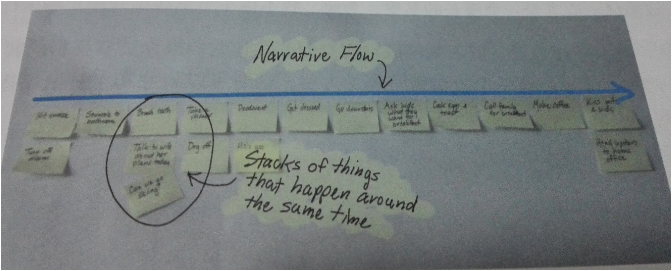 Narrative Flow
Brush teeth
Take a
shower
Deodorant
Get dressed
Go downstairs
Ask kids
what they
want for
breakfast
Cook eggs &
toast
Call family
for breakfast
Make coffee
Kiss wife
& kids
Turn off
alarm
Talk to wife
about her
plans today
Dry off
Head upstairs
to home
office
Can we go
Stacks of things
that happen around
the same time